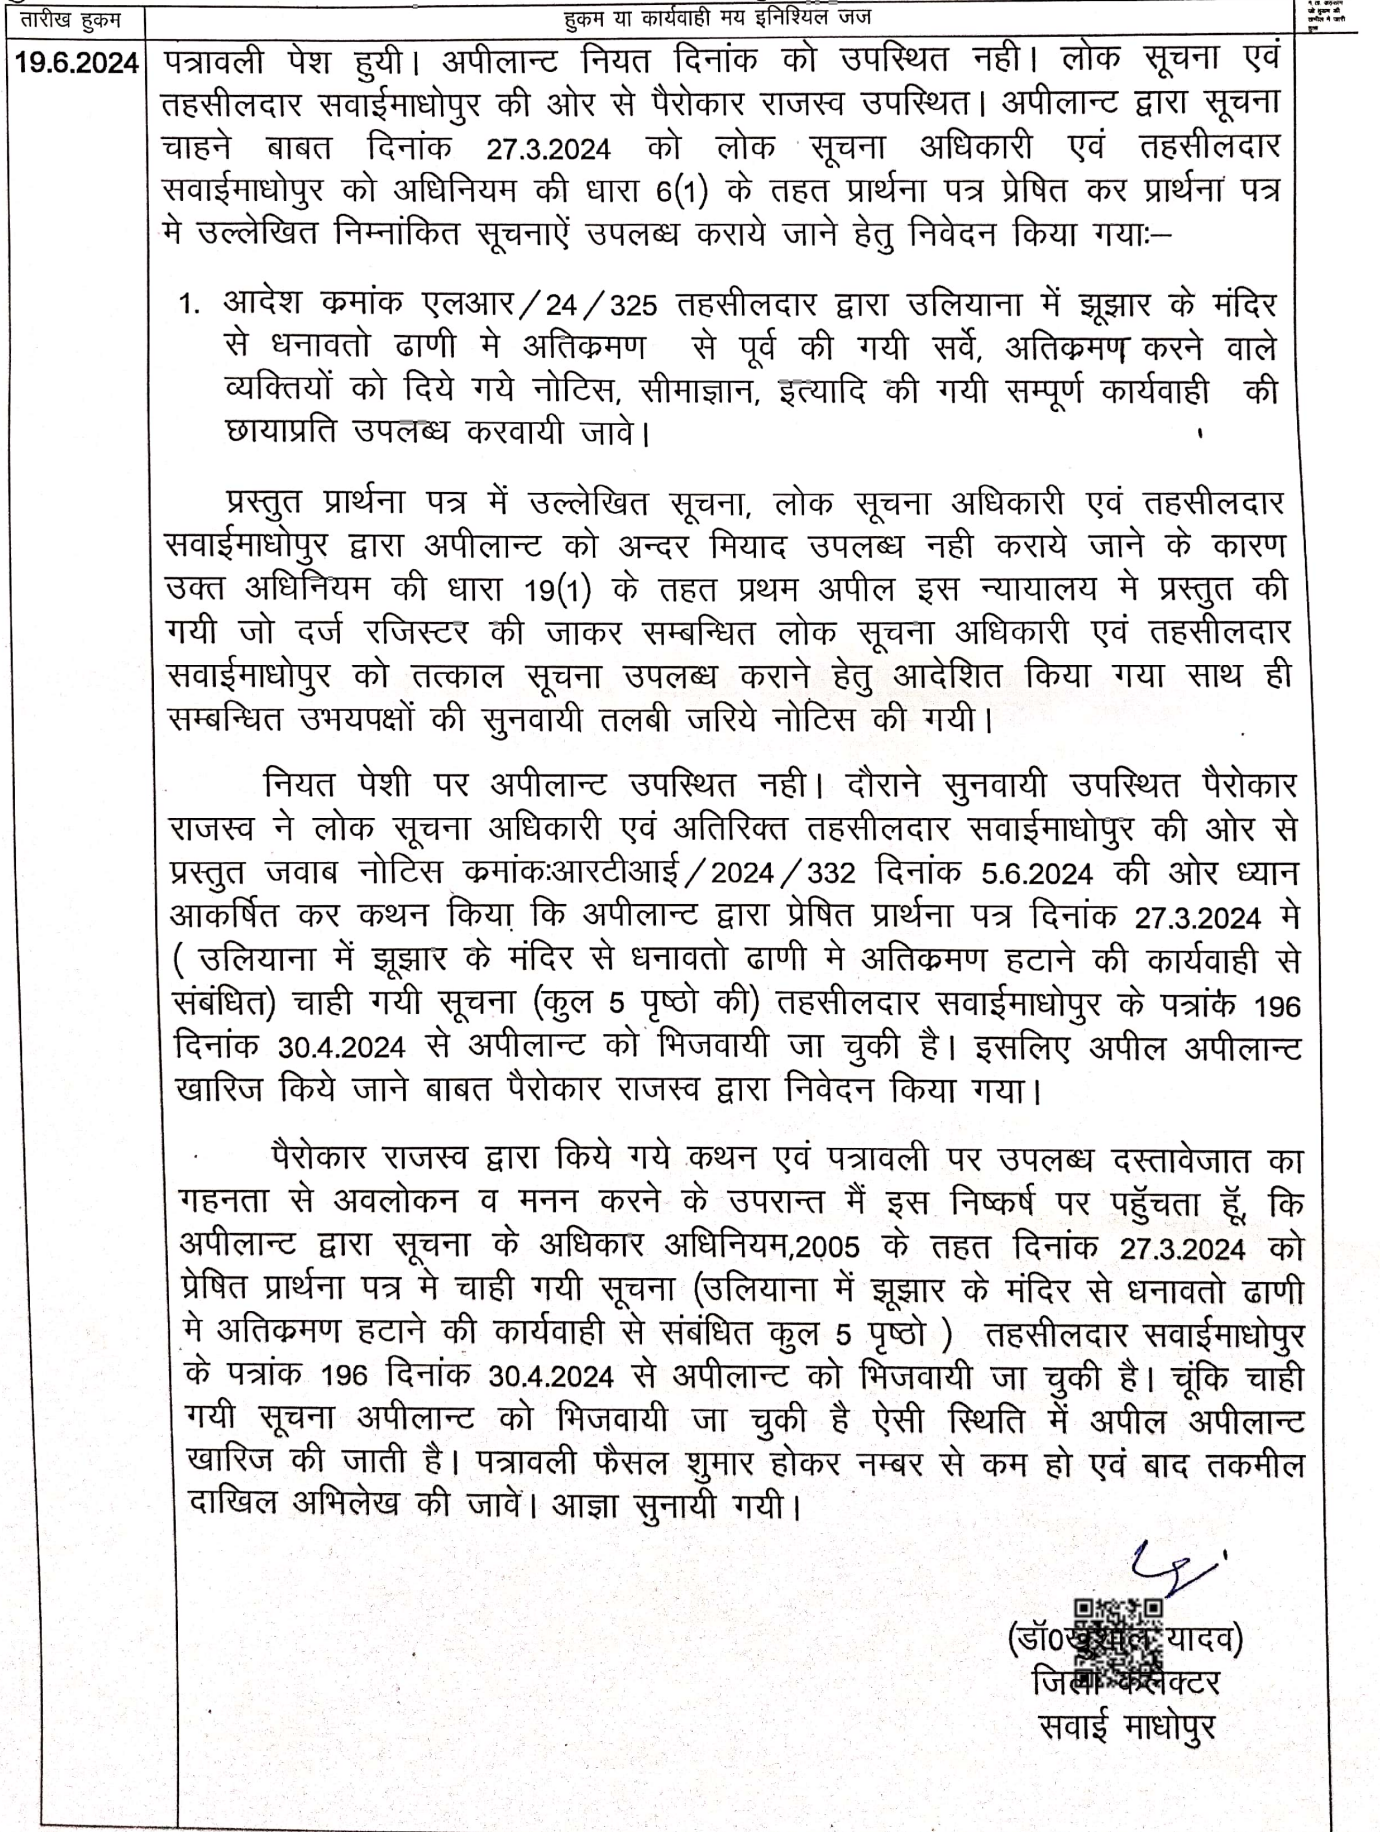 तारीख हुकम
हुकम या कार्यवाही मय इनिश्यिल जज
19.6.2024
पत्रावली पेश हुयी। अपीलान्ट नियत दिनांक को उपस्थित नही। लोक सूचना एवं
तहसीलदार सवाईमाधोपुर की ओर से पैरोकार राजस्व उपस्थित। अपीलान्ट द्वारा सूचना
चाहने बाबत दिनांक 27.3.2024 को लोक सूचना अधिकारी एवं तहसीलदार
सवाईमाधोपुर को अधिनियम की धारा 6(1) के तहत प्रार्थना पत्र प्रेषित कर प्रार्थना पत्र
मे उल्लेखित निम्नांकित सूचनाऐं उपलब्ध कराये जाने हेतु निवेदन किया गयाः–
1. आदेश क्रमांक एलआर/24/325 तहसीलदार द्वारा उलियाना में झूझार के मंदिर
से धनावतो ढाणी मे अतिक्रमण से पूर्व की गयी सर्वे, अतिक्रमण करने वाले
व्यक्तियों को दिये गये नोटिस, सीमाज्ञान, इत्यादि की गयी सम्पूर्ण कार्यवाही की
छायाप्रति उपलब्ध करवायी जावे।
प्रस्तुत प्रार्थना पत्र में उल्लेखित सूचना, लोक सूचना अधिकारी एवं तहसीलदार
सवाईमाधोपुर द्वारा अपीलान्ट को अन्दर मियाद उपलब्ध नही कराये जाने के कारण
उक्त अधिनियम की धारा 19(1) के तहत प्रथम अपील इस न्यायालय मे प्रस्तुत की
गयी जो दर्ज रजिस्टर की जाकर सम्बन्धित लोक सूचना अधिकारी एवं तहसीलदार
सवाईमाधोपुर को तत्काल सूचना उपलब्ध कराने हेतु आदेशित किया गया साथ ही
सम्बन्धित उभयपक्षों की सुनवायी तलबी जरिये नोटिस की गयी।
नियत पेशी पर अपीलान्ट उपस्थित नही। दौराने सुनवायी उपस्थित पैरोकार
राजस्व ने लोक सूचना अधिकारी एवं अतिरिक्त तहसीलदार सवाईमाधोपुर की ओर से
प्रस्तुत जवाब नोटिस क्रमांकःआरटीआई/2024/332 दिनांक 5.6.2024 की ओर ध्यान
आकर्षित कर कथन किया कि अपीलान्ट द्वारा प्रेषित प्रार्थना पत्र दिनांक 27.3.2024 मे
( उलियाना में झूझार के मंदिर से धनावतो ढाणी मे अतिक्रमण हटाने की कार्यवाही से
संबंधित) चाही गयी सूचना (कुल 5 पृष्ठो की) तहसीलदार सवाईमाधोपुर के पत्रांक 196
दिनांक 30.4.2024 से अपीलान्ट को भिजवायी जा चुकी है। इसलिए अपील अपीलान्ट
खारिज किये जाने बाबत पैरोकार राजस्व द्वारा निवेदन किया गया।
पैरोकार राजस्व द्वारा किये गये कथन एवं पत्रावली पर उपलब्ध दस्तावेजात का
गहनता से अवलोकन व मनन करने के उपरान्त मैं इस निष्कर्ष पर पहुॅचता हूॅ, कि
अपीलान्ट द्वारा सूचना के अधिकार अधिनियम,2005 के तहत दिनांक 27.3.2024 को
प्रेषित प्रार्थना पत्र मे चाही गयी सूचना (उलियाना में झूझार के मंदिर से धनावतो ढाणी
मे अतिक्रमण हटाने की कार्यवाही से संबंधित कुल 5 पृष्ठो ) तहसीलदार सवाईमाधोपुर
के पत्रांक 196 दिनांक 30.4.2024 से अपीलान्ट को भिजवायी जा चुकी है। चूंकि चाही
गयी सूचना अपीलान्ट को भिजवायी जा चुकी है ऐसी स्थिति में अपील अपीलान्ट
खारिज की जाती है। पत्रावली फैसल शुमार होकर नम्बर से कम हो एवं बाद तकमील
दाखिल अभिलेख की जावे। आज्ञा सुनायी गयी।
(डॉ0खुशाल यादव)
जिला कलेक्टर
सवाई माधोपुर